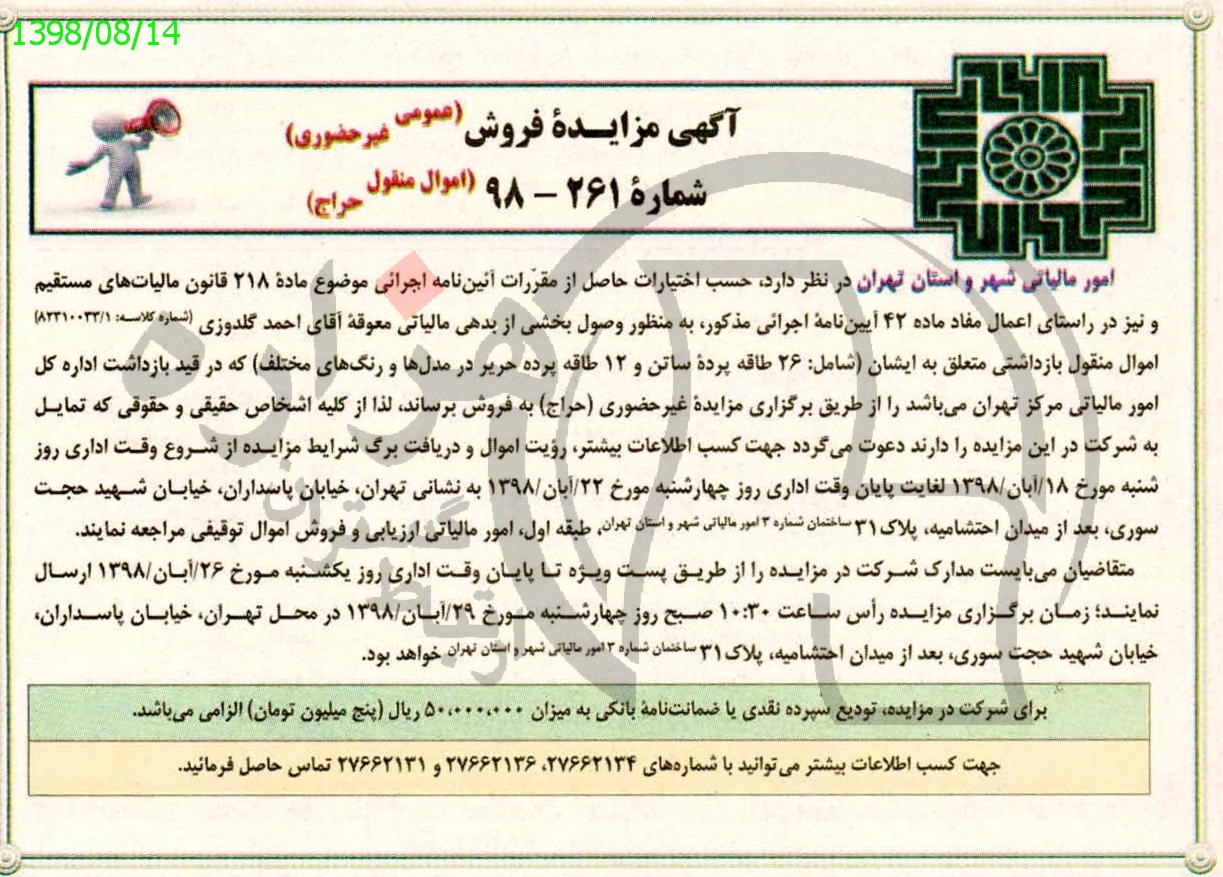 1398/08/14
آگهی مزایـــدهٔ فروش (عمومی غیرحضوری)
شمارهٔ ۲۶۱ – ۹۸ (اموال منقول حراج)
امور مالیاتی شهر و استان تهران در نظر دارد، حسب اختیارات حاصل از مقرّرات آئین‌نامه اجرائی موضوع مادهٔ ۲۱۸ قانون مالیات‌های مستقیم
و نیز در راستای اعمال مفاد ماده ۴۲ آیین‌نامهٔ اجرائی مذکور، به منظور وصول بخشی از بدهی مالیاتی معوقهٔ آقای احمد گلدوزی (شماره کلاسـه: ۸۲۳۱۰۰۳۳/۱)
اموال منقول بازداشتی متعلق به ایشان (شامل: ۲۶ طاقه پردهٔ ساتن و ۱۲ طاقه پرده حریر در مدل‌ها و رنگ‌های مختلف) که در قید بازداشت اداره کل
امور مالیاتی مرکز تهران می‌باشد را از طریق برگزاری مزایدهٔ غیرحضوری (حراج) به فروش برساند، لذا از کلیه اشخاص حقیقی و حقوقی که تمایـل
به شرکت در این مزایده را دارند دعوت می‌گردد جهت کسب اطلاعات بیشتر، رؤیت اموال و دریافت برگ شرایط مزایـده از شــروع وقـت اداری روز
شنبه مورخ ۱۸/آبان/۱۳۹۸ لغایت پایان وقت اداری روز چهارشنبه مورخ ۲۲/آبان/۱۳۹۸ به نشانی تهران، خیابان پاسداران، خیابـان شــهید حجـت
سوری، بعد از میدان احتشامیه، پلاک ۳۱ ساختمان شماره ۳ امور مالیاتی شهر و استان تهران، طبقه اول، امور مالیاتی ارزیابی و فروش اموال توقیفی مراجعه نمایند.
متقاضیان می‌بایست مدارک شـرکت در مزایـده را از طریـق پسـت ویـژه تـا پایـان وقـت اداری روز یکشـنبه مـورخ ۲۶/آبـان/۱۳۹۸ ارسـال
نماینـد؛ زمـان برگـزاری مزایـده رأس سـاعت ۱۰:۳۰ صـبح روز چهارشـنبه مـورخ ۲۹/آبـان/۱۳۹۸ در محـل تهـران، خیابـان پاسـداران،
خیابان شهید حجت سوری، بعد از میدان احتشامیه، پلاک ۳۱ ساختمان شماره ۳ امور مالیاتی شهر و استان تهران خواهد بود.
برای شرکت در مزایده، تودیع سپرده نقدی یا ضمانت‌نامهٔ بانکی به میزان ۵۰،۰۰۰،۰۰۰ ریال (پنج میلیون تومان) الزامی می‌باشد.
جهت کسب اطلاعات بیشتر می‌توانید با شماره‌های ۲۷۶۶۲۱۳۴، ۲۷۶۶۲۱۳۶ و ۲۷۶۶۲۱۳۱ تماس حاصل فرمائید.
هزاره
گستران
ارتباط